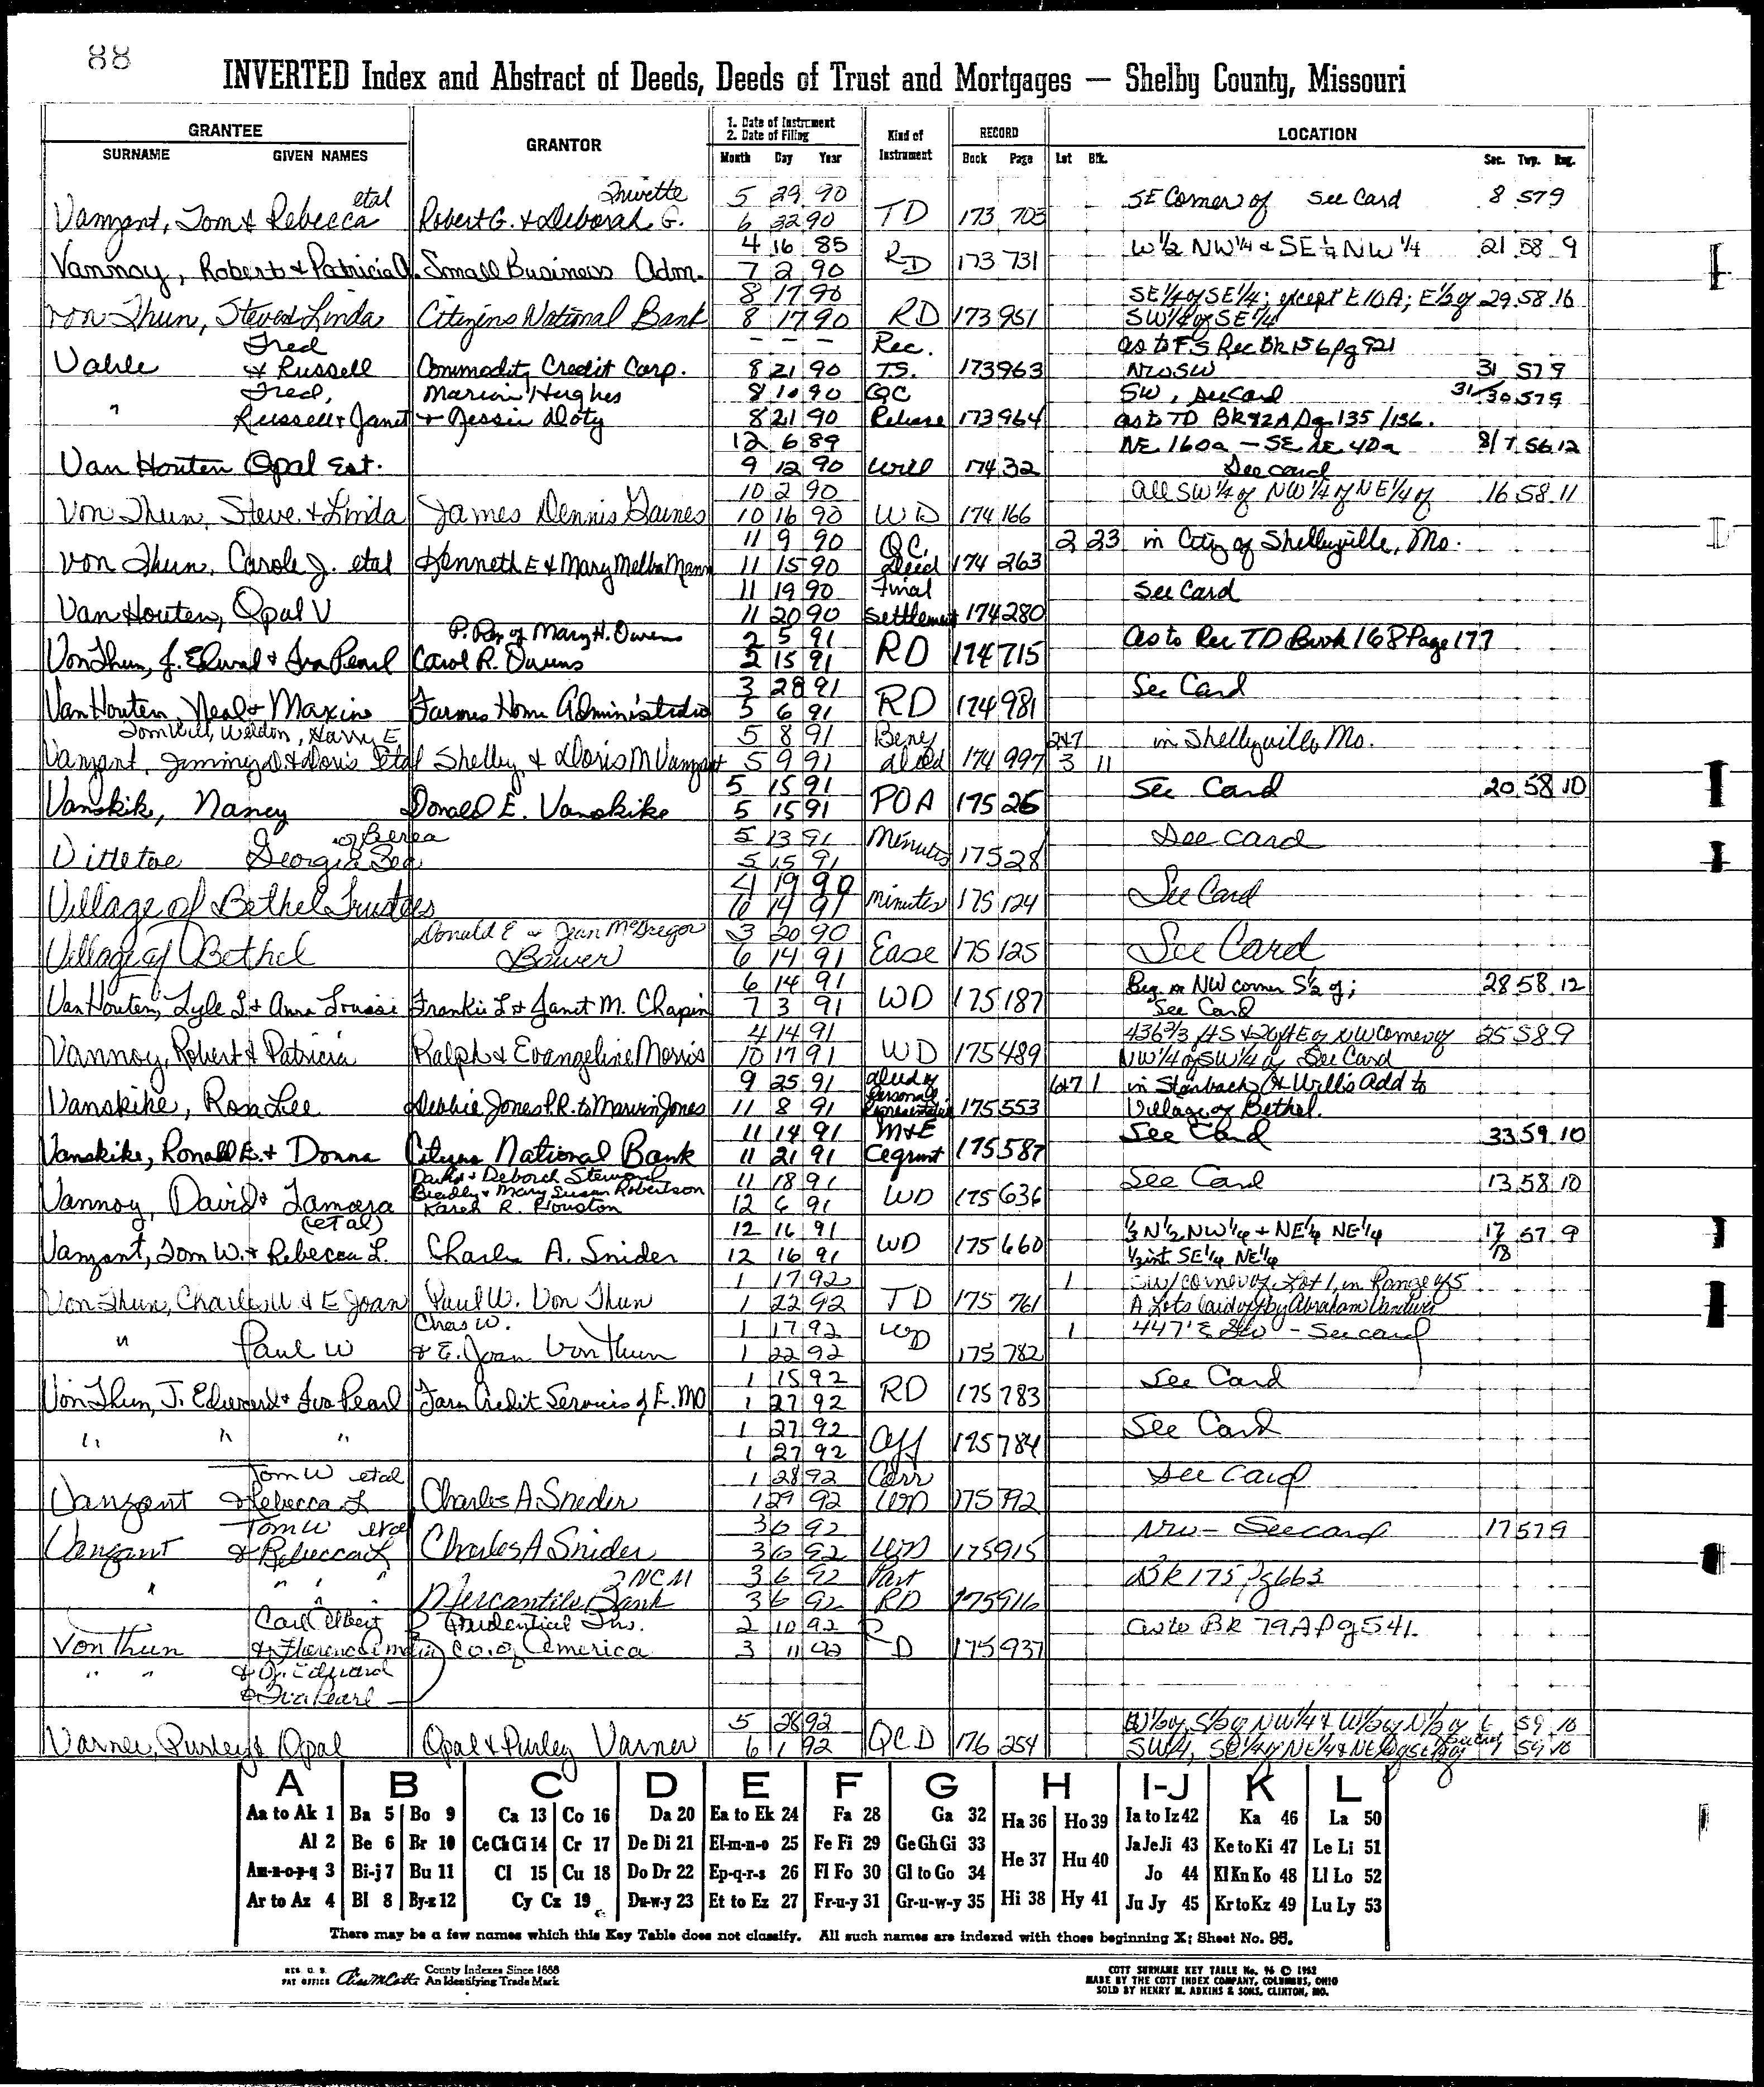 88
INVERTED Index and Abstract of Deeds, Deeds of Trust and Mortgages — Shelby County, Missouri
GRANTEE
SURNAME GIVEN NAMES
GRANTOR
1. Date of Instrument
2. Date of Filing
Month Day Year
Kind of Instrument
RECORD
Book Page
Lot Blk.
LOCATION
Sec. Twp. Rng.
etal 5 29 90 SE Corner of See Card 8 57 9
Vanzant, Tom & Rebecca Robert G. & Deborah G. 6 22 90 TD 173 703
4 16 85 W ½ NW ¼ & SE ¼ NW ¼ 21 58 9
Vannoy, Robert & Patricia A. Small Business Adm. 7 2 90 RD 173 731
8 17 90 SE ¼ of SE ¼; except E 10A; E ½ of 29 58 16
von Thun, Steve & Linda Citizens National Bank 8 17 90 RD 173 951 SW ¼ of SE ¼
Fred - - - Rec. as to F S Rec Bk 156 pg 921
Vahle & Russell Commodity Credit Corp. 8 21 90 T.S. 173 963 31 57 9
" Fred, Marion Hughes 8 10 90 QC SW, See Card 31/30 57 9
Russell & Janet & Jessie Doty 8 21 90 Release 173 964 as to TD BK 92A Pg 135/136.
12 6 89 NE 160a - SE NE 40a 8/7 56 12
Van Houten Opal Est. 9 12 90 Will 174 32 See card
10 2 90 all SW ¼ of NW ¼ of NE ¼ of 16 58 11
Von Thun, Steve & Linda James Dennis Gaines 10 16 90 WD 174 166
11 9 90 Q.C. 2 23 in City of Shelbyville, Mo.
von Thun, Carole J. etal Kenneth E & Mary Melba Mann 11 15 90 Deed 174 263
11 19 90 Final See Card
Van Houten, Opal V 11 20 90 Settlement 174 280
P. Rep of Mary H. Owens 2 5 91 As to Rec TD Book 168 Page 177
Von Thun, J. Edward & Iva Pearl Carol R. Owens 2 15 91 RD 174 715
3 28 91 See Card
Van Houten, Neal & Maxine Farmers Home Administration 5 6 91 RD 174 981
Tom Will, Weldon, Harry E 5 8 91 Beny 2&7 in Shelbyville Mo.
Vanzant, Jimmy D & Doris Etal Shelby & Doris M Vanzant 5 9 91 deed 174 997 3 11
5 15 91 See Card 20 58 10
Vanskik, Nancy Donald E. Vanskike 5 15 91 POA 175 26
of Berea 5 13 91 Minutes See card
Vittetoe Georgia Bea 5 15 91 175 28
4 19 90 See Card
Village of Bethel Trustees 6 14 91 minutes 175 124
Donald E & Jean McGregor 3 20 90 See Card
Village of Bethel Bower 6 14 91 Ease 175 125
6 14 91 Beg in NW corner S ½ of; 28 58 12
Van Houten, Lyle S & Anna Louise Frankie L & Janet M. Chapin 7 3 91 WD 175 187 See Card
4 14 91 436 2/3 ft S & 26 ft E of NW Corner of 25 58 9
Vannoy, Robert & Patricia Ralph & Evangeline Morris 10 17 91 WD 175 489 NW ¼ of SW ¼ of See Card
9 25 91 deed of 6&7 1 in Steinbach & Will's Add to
Vanskike, Rosa Lee Debbie Jones P.R. to Marvin Jones 11 8 91 Personal Representative 175 553 Village of Bethel.
11 14 91 M&E See Card 33 59 10
Vanskike, Ronald E. & Donna Citizens National Bank 11 21 91 175 587
& Deborah Steward 11 18 91 See Card 13 58 10
Bradly & Mary Susan Robertson
Vannoy, David & Tamara Karen R. Houston 12 6 91 WD 175 636
(etal) 12 16 91 ½ N ½ NW ¼ & NE ¼ NE ¼ 17/18 57 9
Vanzant, Tom W. & Rebecca L. Charles A. Snider 12 16 91 WD 175 660 ½ int SE ¼ NE ¼
1 17 92 1 SW corner of Lot 1, in Range of 5
Von Thun, Charles W & E Joan Paul W. Von Thun 1 22 92 TD 175 761 A Lots laid off by Abraham Vandiver
Chas W. 1 17 92 WD 1 447' E - See card
" Paul W & E. Joan Von Thun 1 22 92 175 782
1 15 92 See Card
Von Thun, J. Edward & Iva Pearl Farm Credit Services of E. MO 1 27 92 RD 175 783
1 27 92 See Card
" " " 1 27 92 Aff 175 784
Tom W etal 1 28 92 Corr See Card
Vanzant & Rebecca L Charles A Sneder 1 29 92 WD 175 792
Tom W etal 3 6 92 NW - See card 17 57 9
Vanzant & Rebecca L Charles A Snider 3 6 92 WD 175 915
" " " " NCM 3 6 92 Part BK 175 Pg 663
Mercantile Bank 3 6 92 RD 175 916
Carl Elbert Prudential Ins. 2 10 92 as to BK 79A Pg 541.
Von Thun & Florence Co. of America 3 11 92 RD 175 937
" " & J. Edward
& Iva Pearl
5 28 92 W ½ of S ½ of NW ¼ & W ½ of N ½ of 59 10
Varner, Purley & Opal Opal & Purley Varner 6 1 92 QCD 176 254 SW ¼, SE ¼ of NE ¼ & NE ¼ of SE ¼ of 59 10
A B C D E F G H I-J K L
Aa to Ak 1 Ba 5 Bo 9 Ca 13 Co 16 Da 20 Ea to Ek 24 Fa 28 Ga 32 Ha 36 Ho 39 Ia to Iz 42 Ka 46 La 50
Al 2 Be 6 Br 10 Ce Ch Ci 14 Cr 17 De Di 21 El-m-n-o 25 Fe Fi 29 Ge Gh Gi 33 He 37 Hu 40 Ja Je Ji 43 Ke to Ki 47 Le Li 51
Am-n-o-p-q 3 Bi-j 7 Bu 11 Cl 15 Cu 18 Do Dr 22 Ep-q-r-s 26 Fl Fo 30 Gl to Go 34 Jo 44 Kl Kn Ko 48 Ll Lo 52
Ar to Az 4 Bl 8 By-z 12 Cy Cz 19 Du-w-y 23 Et to Ez 27 Fr-u-y 31 Gr-u-w-y 35 Hi 38 Hy 41 Ju Jy 45 Kr to Kz 49 Lu Ly 53
There may be a few names which this Key Table does not classify. All such names are indexed with those beginning X; Sheet No. 95.
REG. U. S. PAT OFFICE County Indexes Since 1888 An Identifying Trade Mark
COTT SURNAME KEY TABLE No. 96 © 1962
MADE BY THE COTT INDEX COMPANY, COLUMBUS, OHIO
SOLD BY HENRY M. ADKINS & SONS, CLINTON, MO.